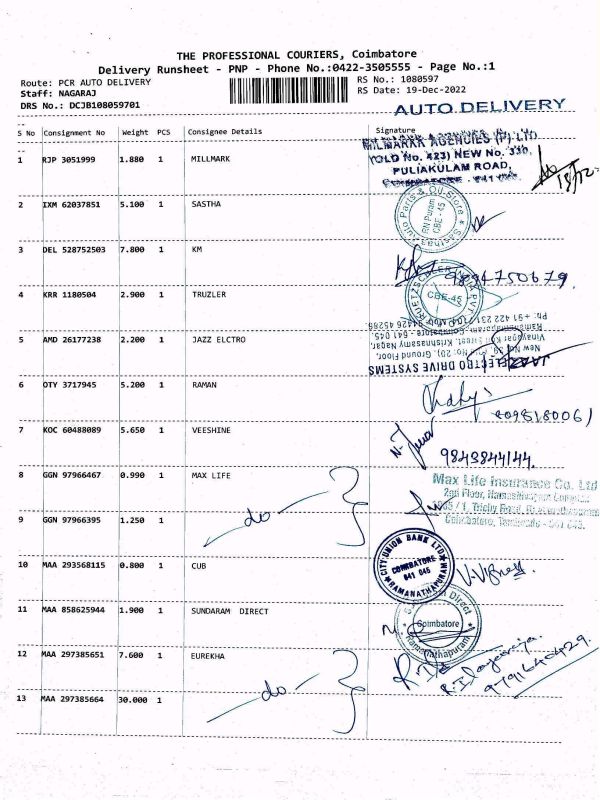 THE PROFESSIONAL COURIERS, Coimbatore
Delivery Runsheet - PNP - Phone No.:0422-3505555 - Page No.:1
Route: PCR AUTO DELIVERY
RS No.: 1080597
Staff: NAGARAJ
RS Date: 19-Dec-2022
DRS No.: DCJB108059701
AUTO DELIVERY
S No Consignment No Weight PCS Consignee Details Signature
1 RJP 3051999 1.880 1 MILLMARK
MILMARK AGENCIES (P) LTD
(OLD No. 423) NEW No. 330,
PULIAKULAM ROAD,
2 IXM 62037851 5.100 1 SASTHA
Auto Parts & Oil Store
RN Puram
CBE - 45
3 DEL 528752503 7.800 1 KM
9894750679.
4 KRR 1180504 2.900 1 TRUZLER
CBE-45
5 AMD 26177238 2.200 1 JAZZ ELCTRO
JAZZ ELECTRO DRIVE SYSTEMS
Vinayagar Koil Street, Krishnasamy Nagar,
Ramanathapuram, Coimbatore - 641 045.
6 OTY 3717945 5.200 1 RAMAN
8098180061
7 KOC 60488089 5.650 1 VEESHINE
9843844144.
8 GGN 97966467 0.990 1 MAX LIFE
Max Life Insurance Co. Ltd
9 GGN 97966395 1.250 1
- do -
10 MAA 293568115 0.800 1 CUB
CITY UNION BANK LTD
COIMBATORE
641 045
RAMANATHAPURAM
11 MAA 858625944 1.900 1 SUNDARAM DIRECT
Direct
Coimbatore
Ramanathapuram
12 MAA 297385651 7.600 1 EUREKHA
9791640429.
- do -
13 MAA 297385664 30.000 1